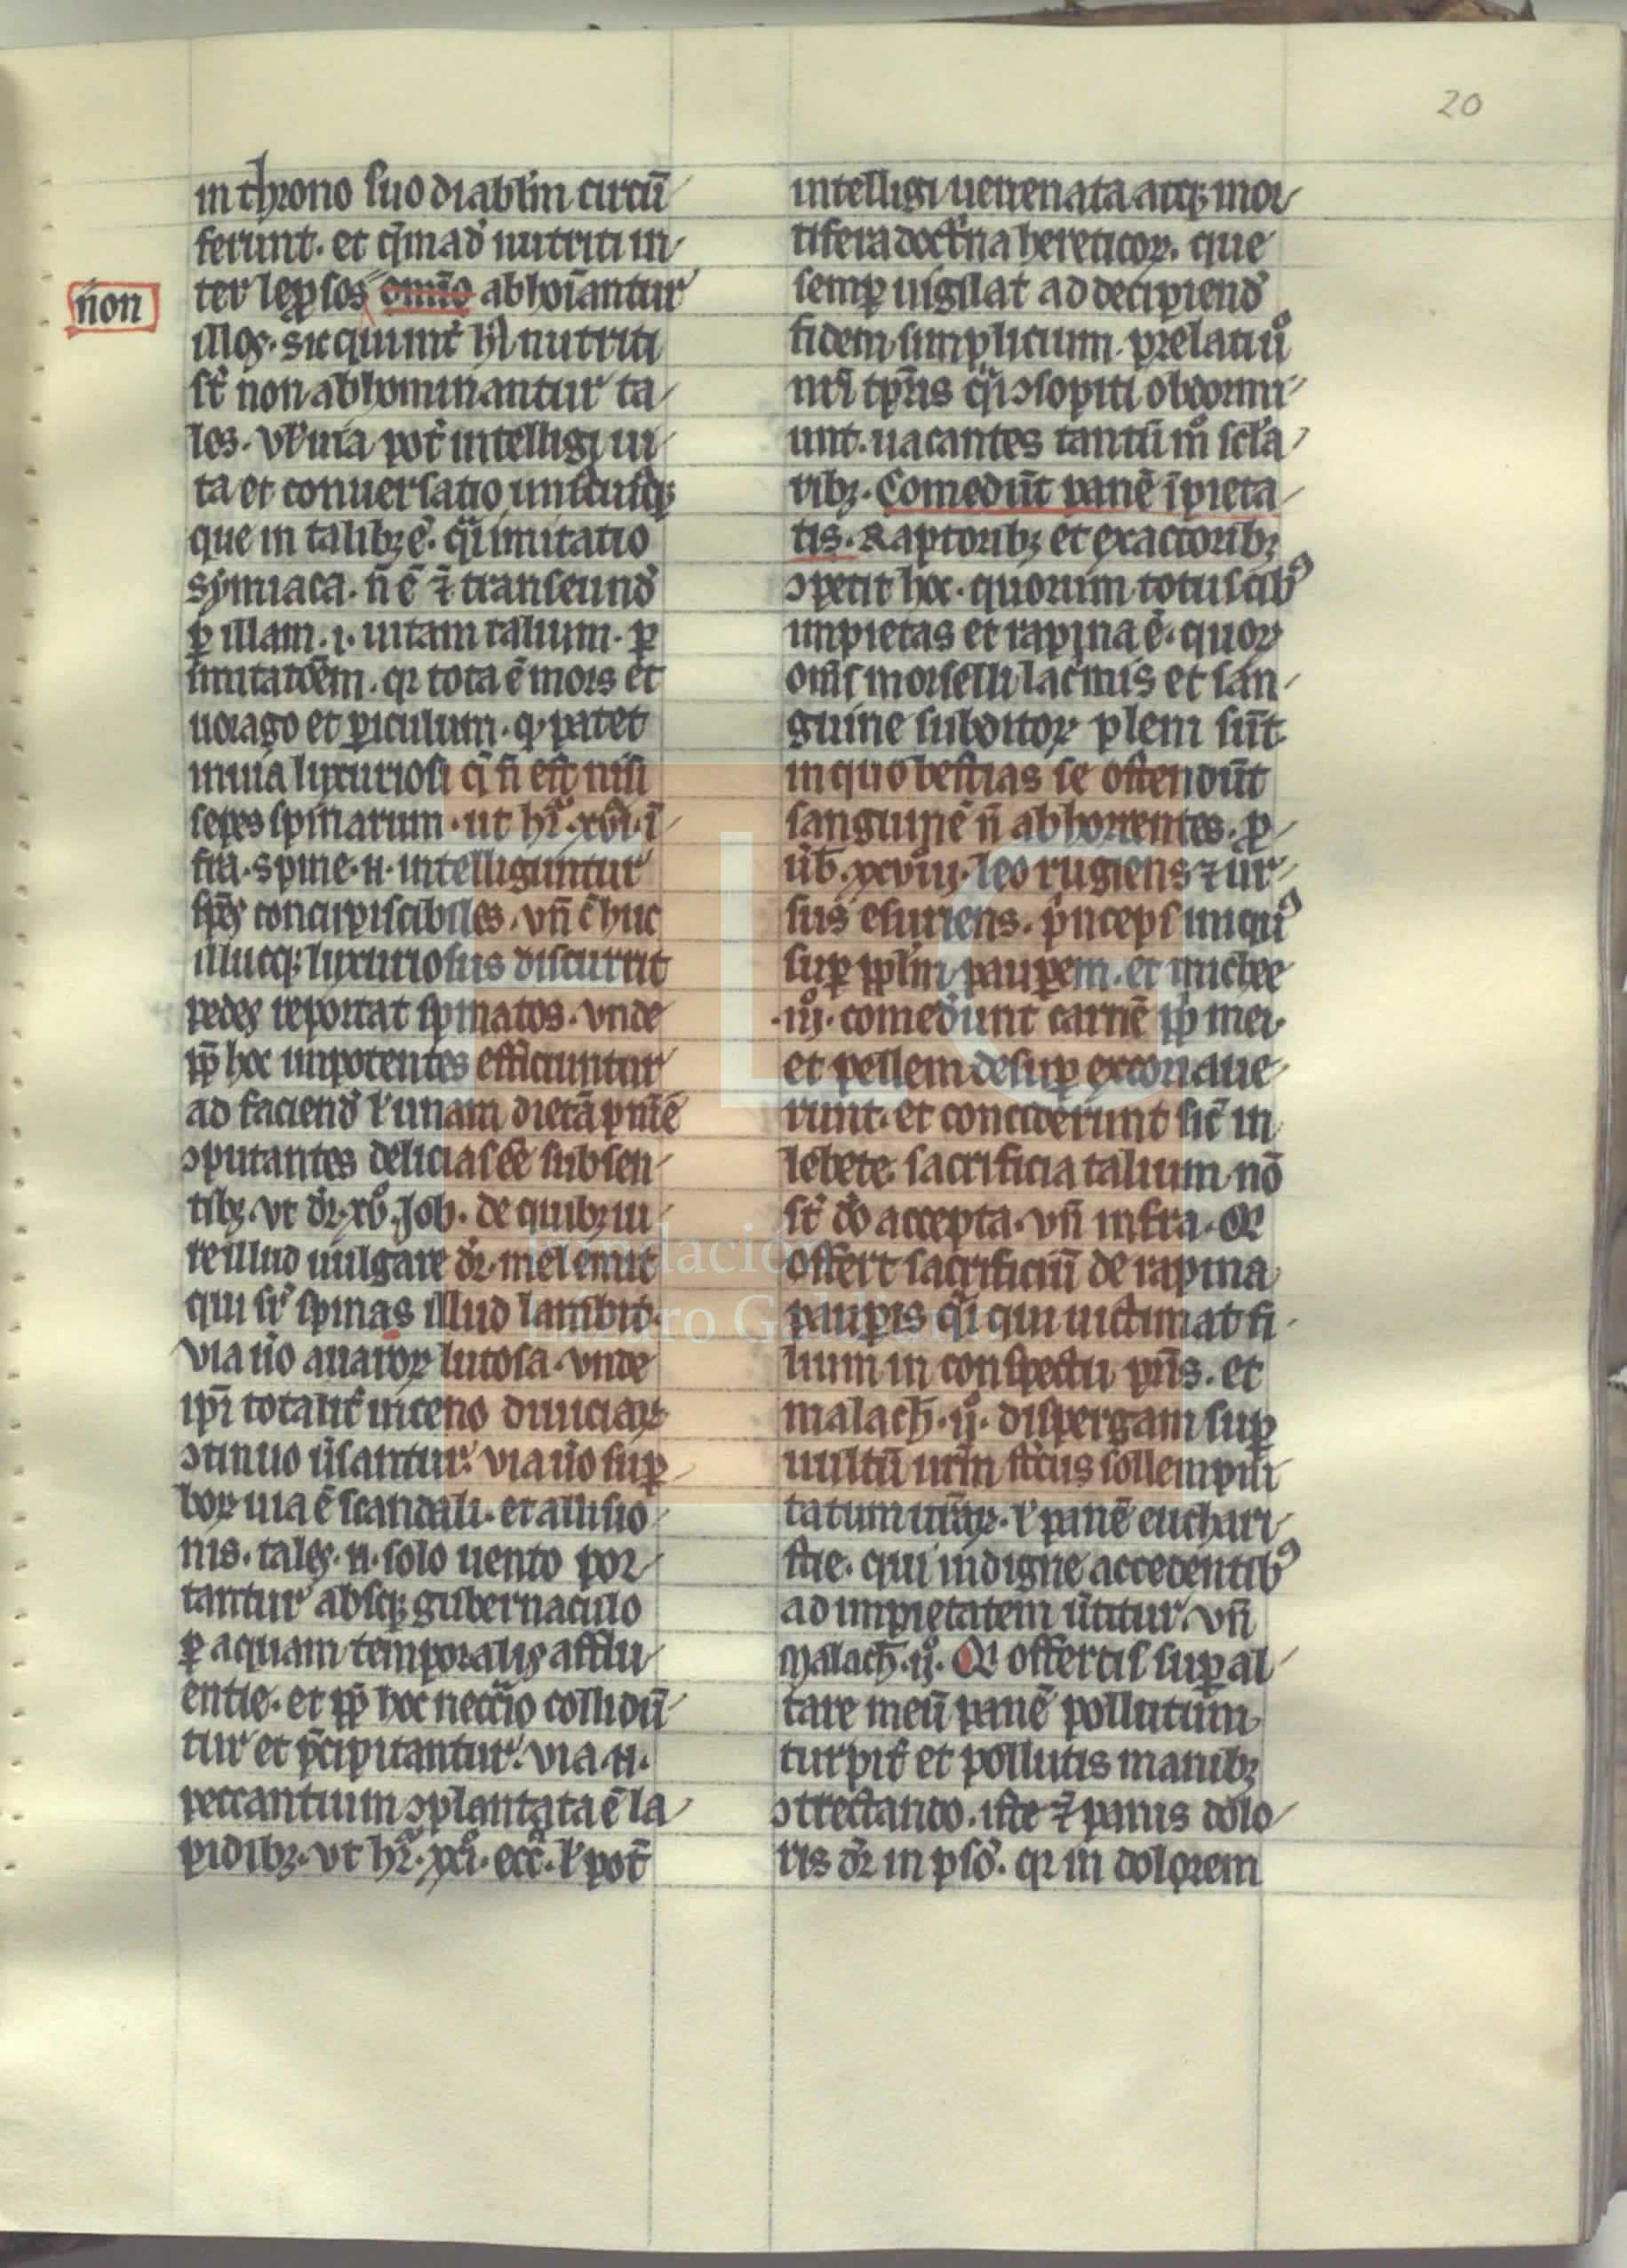 20
in throno suo diabl'm circū
ferunt. et q̄mad' nutriti in
ter lep̱sos om̄no abhoīantur
n̄on
illos. sic qui int' h̄ nutriti
st̄ non abhominantur ta
les. Vl' uia pot' intelligi ui
ta et conuersatio uniscuiusq;
que in talibꝫ ē. q̄ imitatio
symiaca. n̄ ē ⁊ transeund'
ꝑ illam .i. uitam talium. ꝑ
imitatōem. qꝛ tota ē mors et
uorago et ꝑiculum. qꝫ patet
in uia luxuriosi q̄ n̄ est nisi
sepes spinarum. ut
fra. Spine .n. intelliguntur
sp̄es concupiscibiles. vn̄ ē huc
illucq; luxuriosus discurrit
pedes reportat spinatos. vnde
ꝓp̄ hoc impotentes efficiuntur
ad faciend' l' unam dietā pn̄īē
ꝯputantes delicias eē sub sen
tibꝫ. vt dr̄ xvͦ. Job. de quibꝫ iu
re illud uulgare dr̄. mel emit
qui sr̄ spinas illud lambit.
Via u̾o auaroꝝ lutosa. vnde
ip̄i totalit' in ceno diuiciaꝝ
ꝯtinuo u̾santur. via u̾o suꝑ
boꝝ uia ē scandali. et allisio
nis. tales .n. solo uento por
tantur absq; gubernaculo
ꝑ aquam temporalis afflu
entie. et ꝓp̄ hoc necc̄io collidū
tur et p̄cipitantur. via .n.
peccantium ꝯplantata ē la
pidibꝫ. vt hr̄. xxi. ecc̄. l' pot'
intelligi uenenata atq; mor
tifera doct'na hereticoꝝ. que
semꝑ uigilat ad decipiend'
fidem simplicium. prelati u̾o
nr̄i tp̄ris q̄ ꝯsopiti obdormi
unt. uacantes tantū mͦ scl'a
ribꝫ. Comedūt panē īpieta
tis. Raptoribꝫ et exactoribꝫ
ꝯpetit hoc. quorum totus cibꝰ
impietas et rapina ē. quoꝝ
om̄s morselli lac'mis et san
guine subditoꝝ pleni sūt
in quo bestias se ostendūt
sanguinē n̄ abhorrentes. ꝓ
u̾b. xxviij. leo rugiens ⁊ ur
sus esuriens. p'nceps impiꝰ
suꝑ ppl'm pauꝑem. et michee
.iijͦ. comedunt carnē ppl'i mei.
et pellem desuꝑ excoriaue
runt. et conciderunt sic' in
lebete. sacrificia talium nō
st̄ d̄o accepta. vn̄ infra. Qꝛ
offert sacrificiū de rapina
pauꝑis q̄i qui uictimat fi
lium in conspectu pr̄is. et
malach̄. ijͦ. dispergam suꝑ
uultū ur̄m st'cus sollempni
tatum ur̄aꝝ. l' panē euchari
stie. qui indigne accedentibꝰ
ad impietatem u̾titur. vn̄
Malach̄. ijͦ. Qꝛ offertis suꝑ al
tare meū panē pollutum
turpit' et pollutis manibꝫ
ꝯtrectando. iste ⁊ panis dolo
ris dr̄ in ps̄o. qꝛ in dolorem